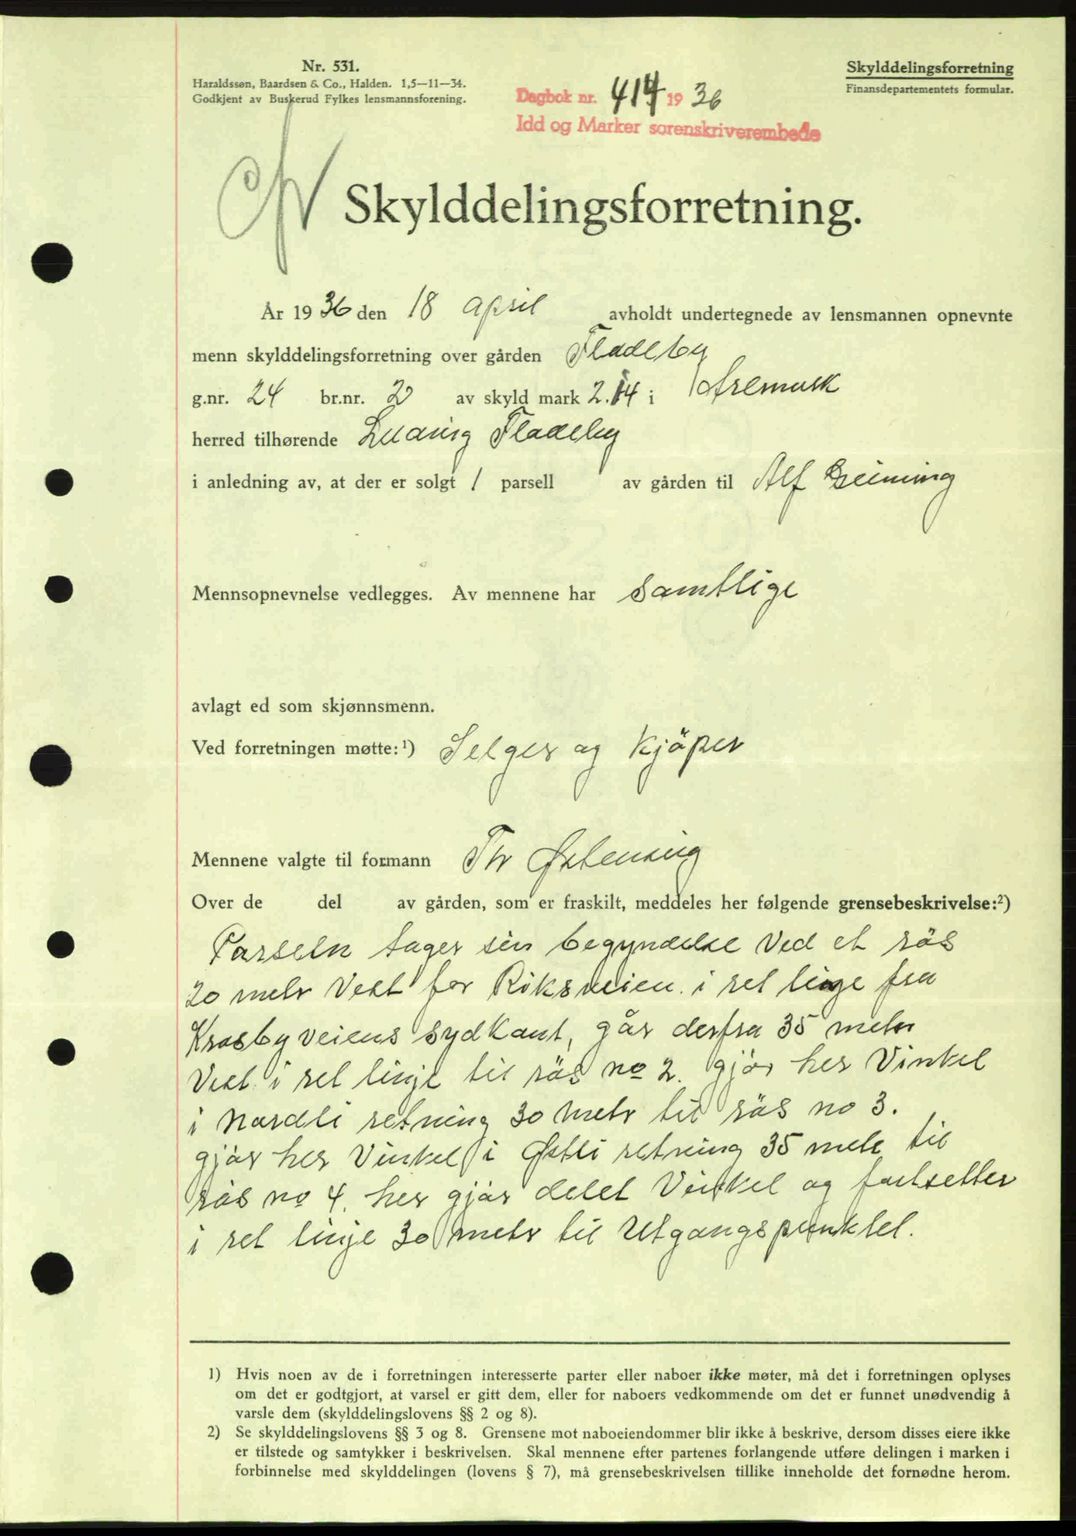 Nr. 531.
Haraldssøn, Baardsen & Co., Halden. 1,5—11—34.
Godkjent av Buskerud Fylkes lensmannsforening.
Skylddelingsforretning
Finansdepartementets formular.
Dagbok nr. 414 1936
Idd og Marker sorenskriverembede
Skylddelingsforretning.
År 1936 den 18 april avholdt undertegnede av lensmannen opnevnte
menn skylddelingsforretning over gården Fladeby
g.nr. 24 br.nr. 2 av skyld mark 2.14 i Aremark
herred tilhørende Ludvig Fladeby
i anledning av, at der er solgt 1 parsell av gården til Alf
Mennsopnevnelse vedlegges. Av mennene har samtlige
avlagt ed som skjønnsmenn.
Ved forretningen møtte:¹) Selger og Kjöper
Mennene valgte til formann Th Østensvig
Over de del av gården, som er fraskilt, meddeles her følgende grensebeskrivelse:²)
Parseln tager sin begyndelse Ved et rös
20 metr Vest for Riksveien i ret linje fra
Krosbyveiens sydkant, går derfra 35 metr
Vest i ret linje til rös no 2. gjör her Vinkel
i Nordli retning 30 metr til rös no 3.
gjör her Vinkel i Østli retning 35 metr til
rös no 4. her gjör delet Vinkel og fortsetter
i ret linje 30 metr til Utgangspunktet.
1) Hvis noen av de i forretningen interesserte parter eller naboer ikke møter, må det i forretningen oplyses
om det er godtgjort, at varsel er gitt dem, eller for naboers vedkommende om det er funnet unødvendig å
varsle dem (skylddelingslovens §§ 2 og 8).
2) Se skylddelingslovens §§ 3 og 8. Grensene mot naboeiendommer blir ikke å beskrive, dersom disses eiere ikke
er tilstede og samtykker i beskrivelsen. Skal mennene efter partenes forlangende utføre delingen i marken i
forbinnelse med skylddelingen (lovens § 7), må grensebeskrivelsen tillike inneholde det fornødne herom.